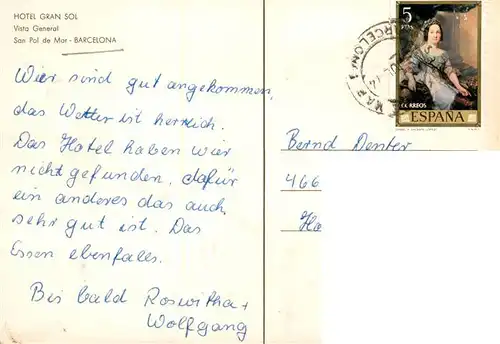 HOTEL GRAN SOL
Vista General
San Pol de Mar - BARCELONA
Wier sind gut angekommen,
das Wetter ist herrlich.
Das Hotel haben wier
nicht gefunden, dafür
ein anderes das auch
sehr gut ist. Das
Essen ebenfalls.
Bis bald Roswitha +
Wolfgang
5
PTAS
CORREOS
ESPAÑA
BARCELONA
MAR
Bernd Denter
466